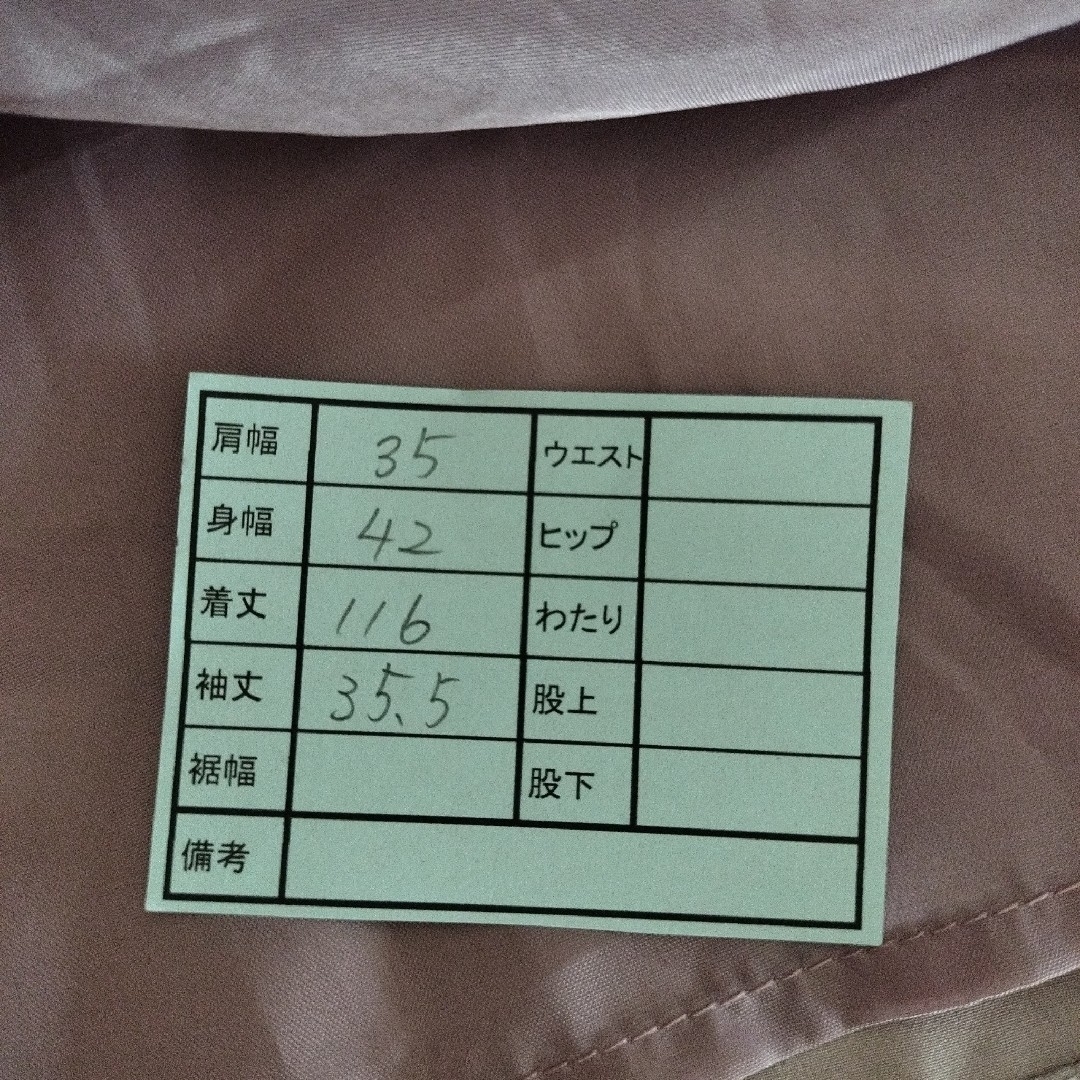 肩幅 35 ウエスト
身幅 42 ヒップ
着丈 116 わたり
袖丈 35.5 股上
裾幅 股下
備考